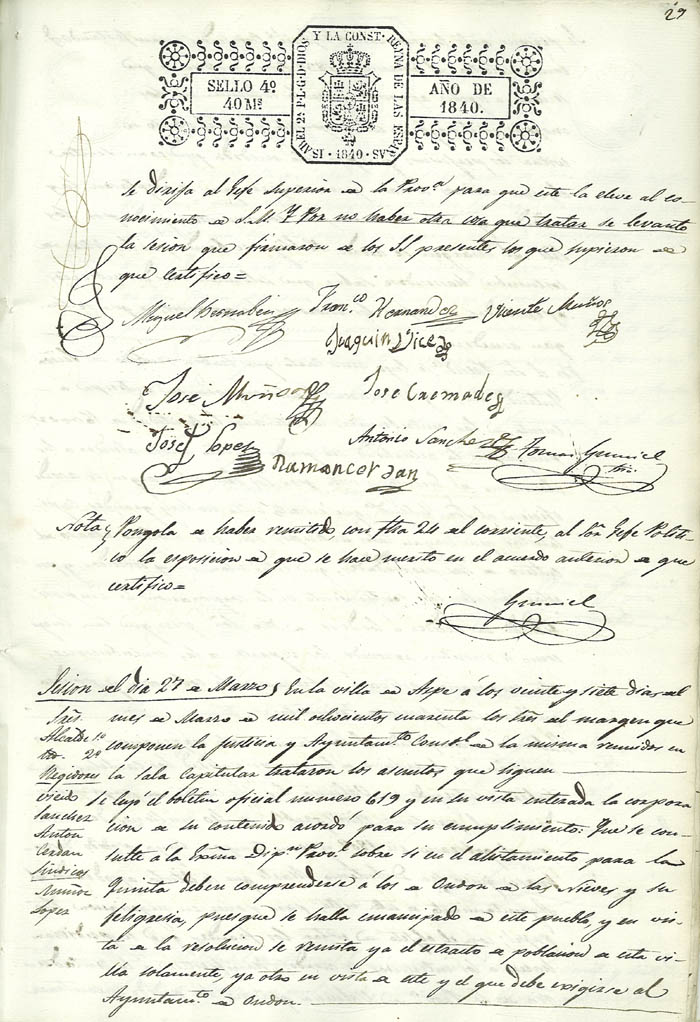 29
Y LA CONST. REYNA DE LAS ESPAÑAS
ISABEL 2ª P.L.G.D.DIOS
SELLO 4º
40 Ms
AÑO DE
1840.
1840
se dirija al Gefe Superior de la Provª para que este la eleve al co-
nocimiento de S.M. Y Por no haber otra cosa que tratar se levantó
la sesion que firmaron de los SS presentes los que supieron de
que certifico=
Miguel Bernabeu Franco Hernandez Vicente Muños
Joaquin Vicedo
Jose Muños Jose Cremades
Josef Lopes Antonio Sanchez Tomas Gumiel
Ramon cerdan
Nota, Pongola de haber remitido con fha 24 del corriente, al Sor Gefe Politi-
co la esposicion de que se hace merito en el acuerdo anterior de que
certifico=
Gumiel
Sesion del dia 27 de Marzo, En la villa de Aspe á los veinte y siete dias del
Sres. mes de Marzo de mil ochocientos cuarenta los Sres del margen que
Alcalde 1º componen la Justicia y Ayuntamto Constl de la misma reunidos en
2º
Regidores la Sala Capitular trataron los asuntos que siguen
Vicedo Se leyó el boletin oficial numero 619 y en su vista enterada la corpora
Sanchez cion de su contenido acordó para su cumplimiento: Que se con-
Anton sulte á la Exma Dipn Provl sobre si en el alistamiento para la
Cerdan
Sindicos Quinta deben comprenderse á los de Ondon de las Nieves y su
Muñoz feligresia, puesque se halla emancipado de este pueblo, y en vis-
Lopez ta de la resolucion se remita ya el estracto de poblacion de esta vi-
lla solamente, ya otro en vista de este y el que debe exigirse al
Ayuntamto de Ondon.